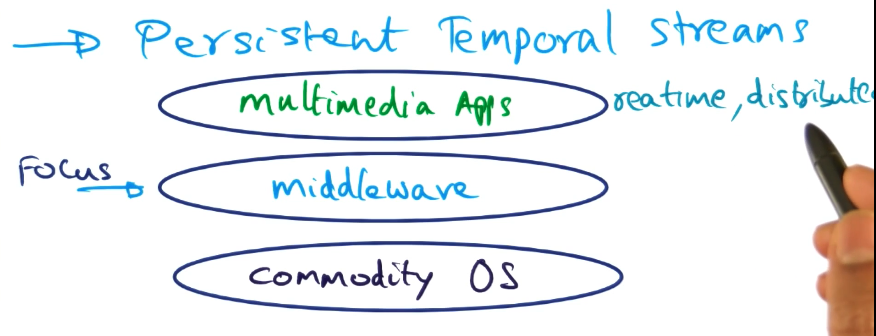 Persistent Temporal Streams
multimedia Apps
reatime, distribute
Focus
middleware
commodity OS